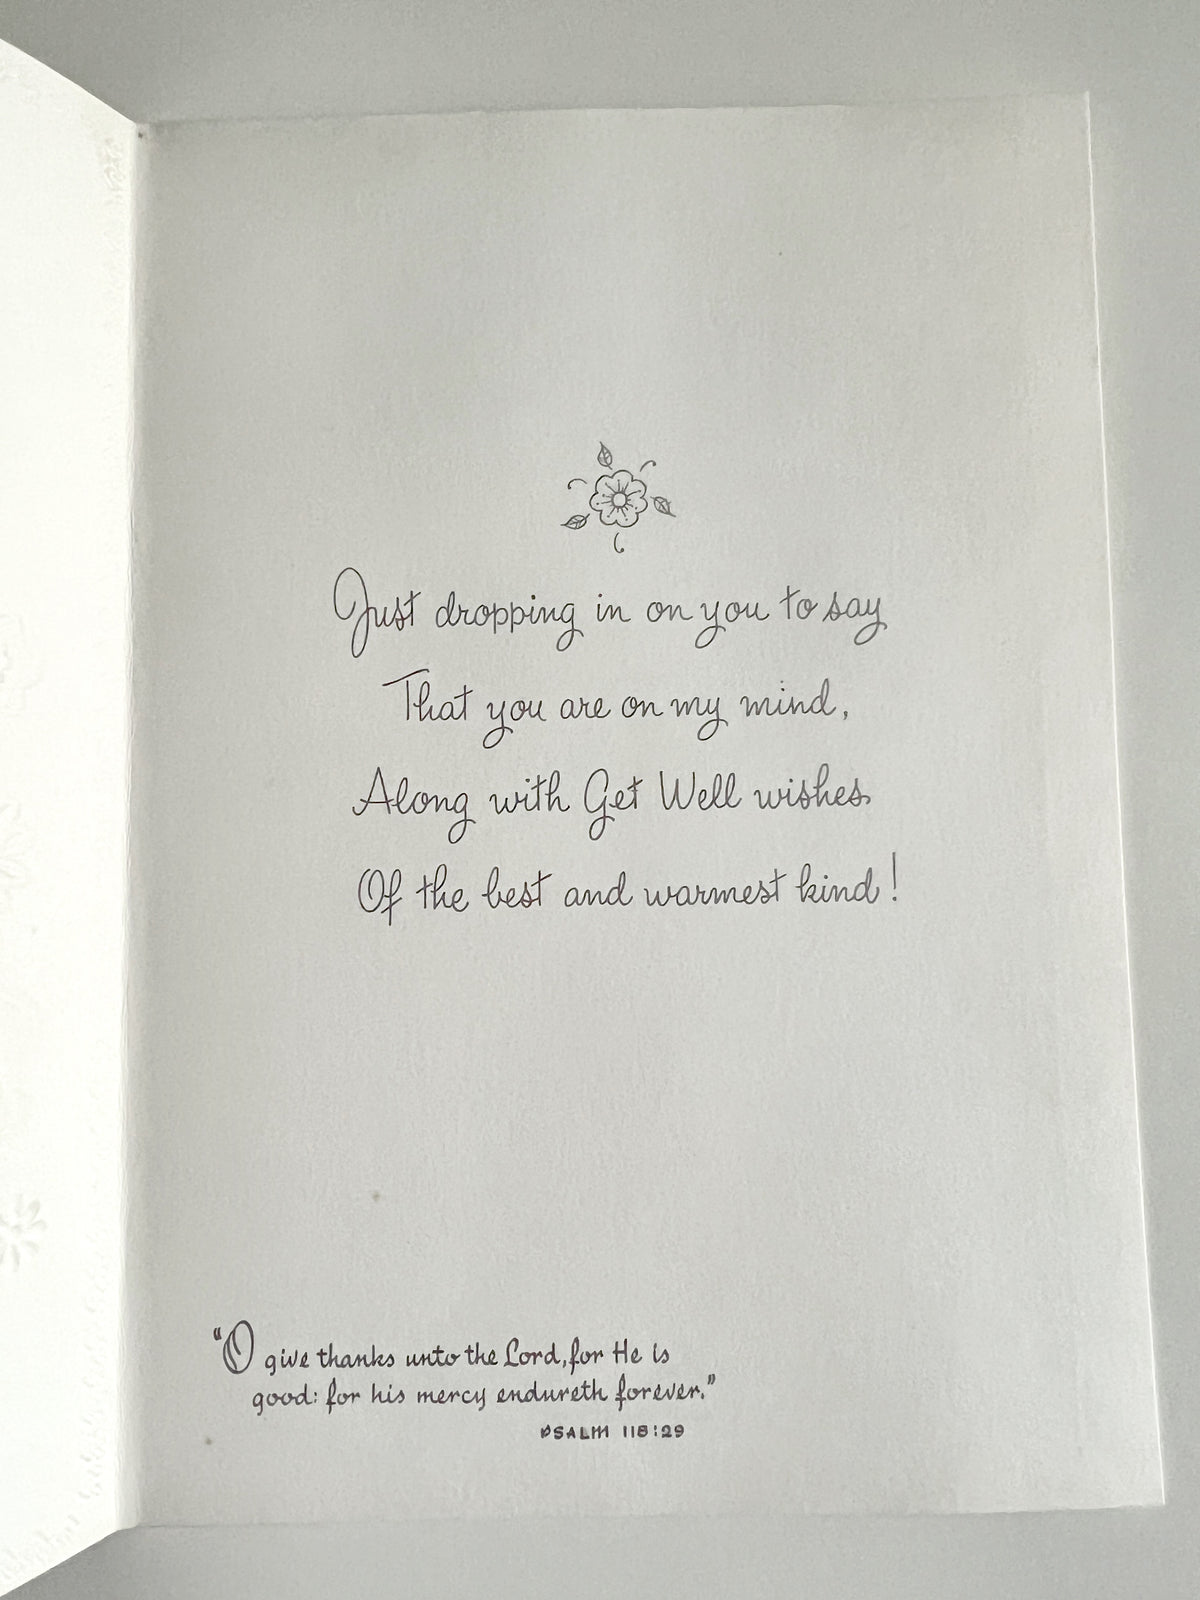 Just dropping in on you to say
That you are on my mind,
Along with Get Well wishes
Of the best and warmest kind!
"O give thanks unto the Lord, for He is
good: for his mercy endureth forever."
PSALM 118:29